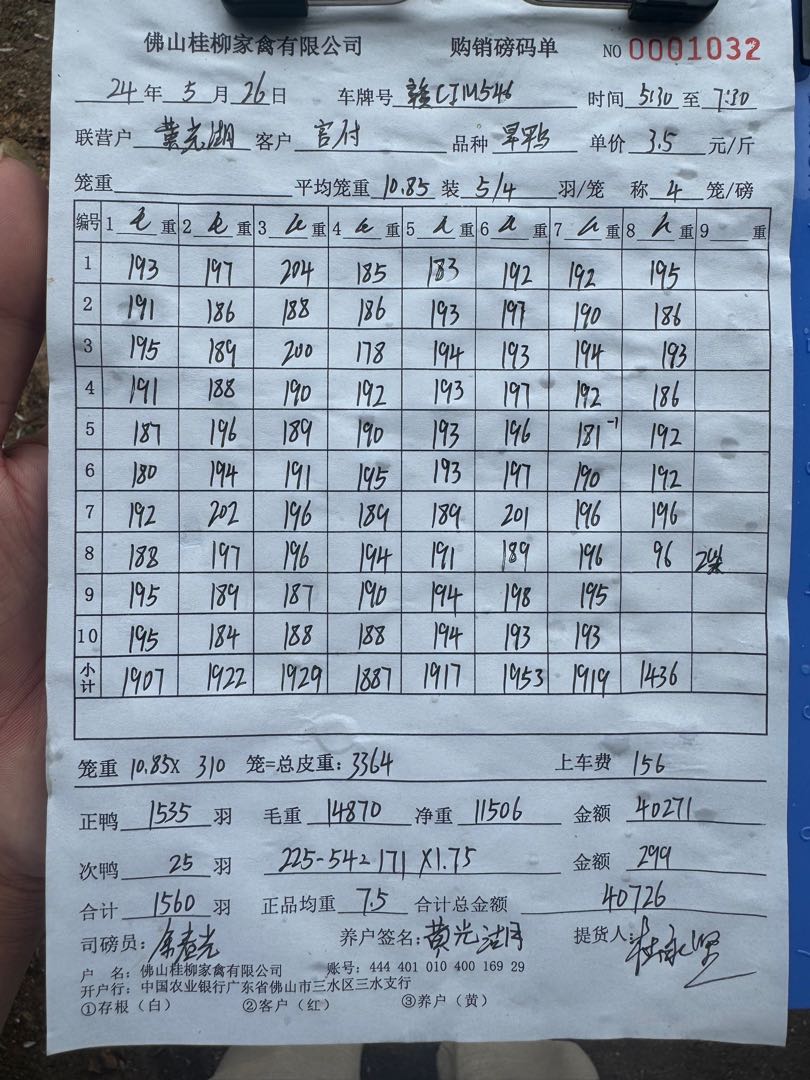 佛山桂柳家禽有限公司 购销磅码单 NO 0001032
24年 5月 26日 车牌号 赣CJM546 时间 5:30 至 7:30
联营户 黄光湖 客户 官付 品种 旱鸭 单价 3.5 元/斤
笼重 平均笼重 10.85 装 5/4 羽/笼 称 4 笼/磅
编号 1 重 2 重 3 重 4 重 5 重 6 重 7 重 8 重 9 重
1 193 197 204 185 183 192 192 195
2 191 186 188 186 193 197 190 186
3 195 189 200 178 194 193 194 193
4 191 188 190 192 193 197 192 186
5 187 196 189 190 193 196 181-1 192
6 180 194 191 195 193 197 190 192
7 192 202 196 189 189 201 196 196
8 188 197 196 194 191 189 196 96
9 195 189 187 190 194 198 195
10 195 184 188 188 194 193 193
小计 1907 1922 1929 1887 1917 1953 1919 1436
笼重 10.85X 310 笼=总皮重: 3364 上车费 156
正鸭 1535 羽 毛重 14870 净重 11506 金额 40271
次鸭 25 羽 225-54=171 X1.75 金额 299
合计 1560 羽 正品均重 7.5 合计总金额 40726
司磅员: 养户签名: 黄光湖 提货人:
户 名: 佛山桂柳家禽有限公司 账号: 444 401 010 400 169 29
开户行: 中国农业银行广东省佛山市三水区三水支行
①存根(白) ②客户(红) ③养户(黄)